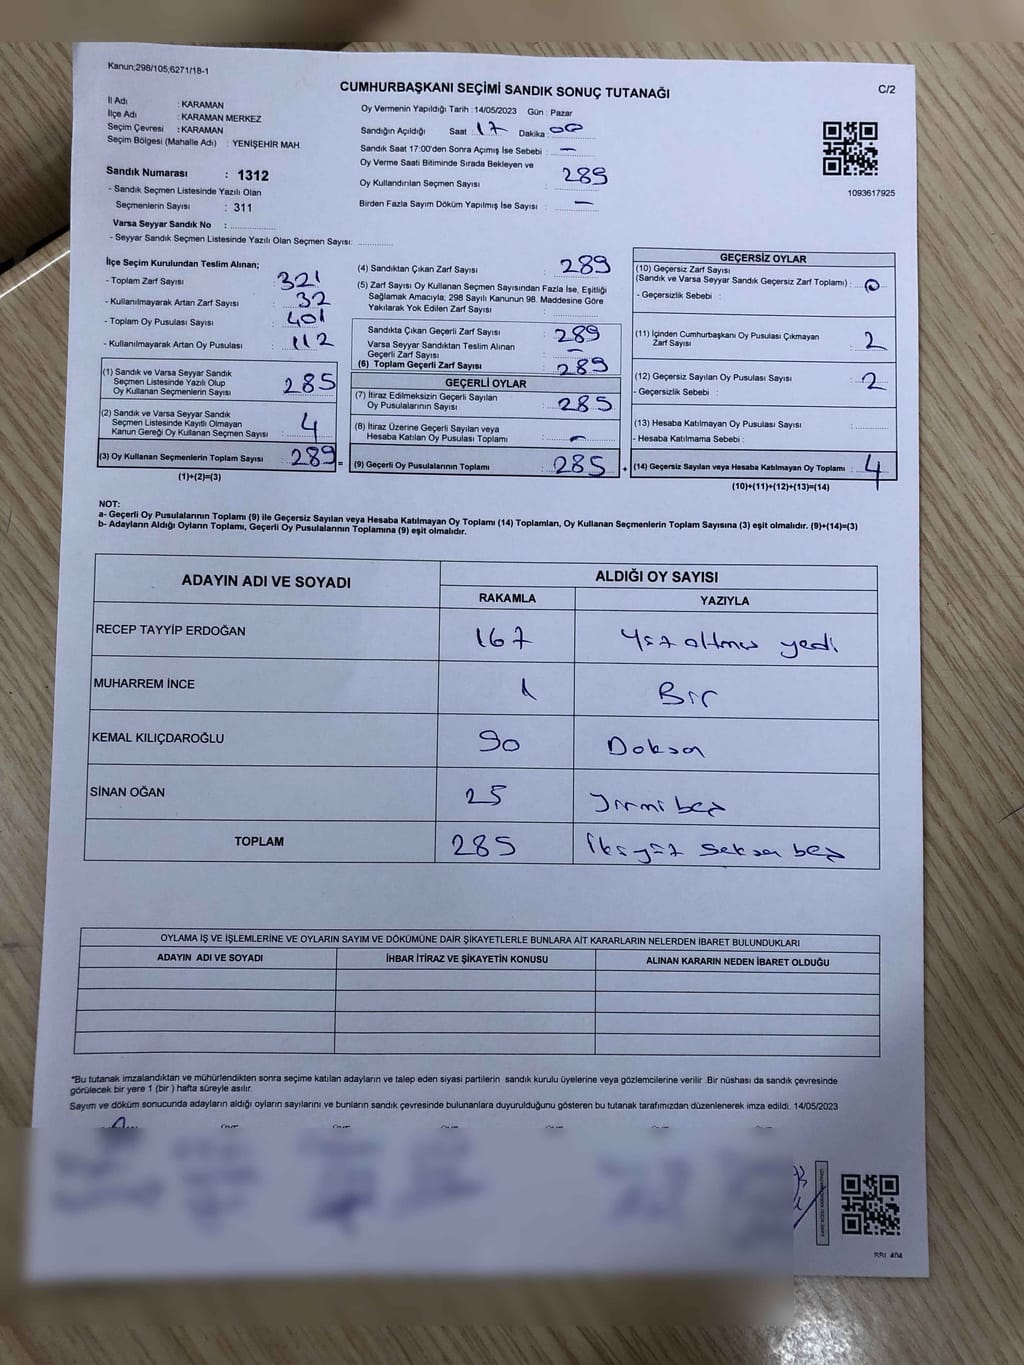 Kanun;298/105;6271/18-1
CUMHURBAŞKANI SEÇİMİ SANDIK SONUÇ TUTANAĞI
C/2
İl Adı : KARAMAN
İlçe Adı : KARAMAN MERKEZ
Seçim Çevresi : KARAMAN
Seçim Bölgesi (Mahalle Adı) : YENİŞEHİR MAH.
Sandık Numarası : 1312
- Sandık Seçmen Listesinde Yazılı Olan
Seçmenlerin Sayısı : 311
Varsa Seyyar Sandık No : ..............
- Seyyar Sandık Seçmen Listesinde Yazılı Olan Seçmen Sayısı: ............
Oy Vermenin Yapıldığı Tarih : 14/05/2023 Gün : Pazar
Sandığın Açıldığı Saat : 17 Dakika : 00
Sandık Saat 17:00'den Sonra Açımış İse Sebebi : —
Oy Verme Saati Bitiminde Sırada Bekleyen ve
Oy Kullandırılan Seçmen Sayısı : 289
Birden Fazla Sayım Döküm Yapılmış İse Sayısı : —
1093617925
İlçe Seçim Kurulundan Teslim Alınan;
- Toplam Zarf Sayısı : 321
- Kullanılmayarak Artan Zarf Sayısı : 32
- Toplam Oy Pusulası Sayısı : 401
- Kullanılmayarak Artan Oy Pusulası : 112
(1) Sandık ve Varsa Seyyar Sandık
Seçmen Listesinde Yazılı Olup
Oy Kullanan Seçmenlerin Sayısı : 285
(2) Sandık ve Varsa Seyyar Sandık
Seçmen Listesinde Kayıtlı Olmayan
Kanun Gereği Oy Kullanan Seçmen Sayısı : 4
(3) Oy Kullanan Seçmenlerin Toplam Sayısı : 289 =
(1)+(2)=(3)
(4) Sandıktan Çıkan Zarf Sayısı : 289
(5) Zarf Sayısı Oy Kullanan Seçmen Sayısından Fazla İse, Eşitliği
Sağlamak Amacıyla; 298 Sayılı Kanunun 98. Maddesine Göre
Yakılarak Yok Edilen Zarf Sayısı : ..............
Sandıkta Çıkan Geçerli Zarf Sayısı : 289
Varsa Seyyar Sandıktan Teslim Alınan
Geçerli Zarf Sayısı : —
(6) Toplam Geçerli Zarf Sayısı : 289
GEÇERLİ OYLAR
(7) İtiraz Edilmeksizin Geçerli Sayılan
Oy Pusulalarının Sayısı : 285
(8) İtiraz Üzerine Geçerli Sayılan veya
Hesaba Katılan Oy Pusulası Toplamı : —
(9) Geçerli Oy Pusulalarının Toplamı : 285 +
GEÇERSİZ OYLAR
(10) Geçersiz Zarf Sayısı
(Sandık ve Varsa Seyyar Sandık Geçersiz Zarf Toplamı) : 0
- Geçersizlik Sebebi :
(11) İçinden Cumhurbaşkanı Oy Pusulası Çıkmayan
Zarf Sayısı : 2
(12) Geçersiz Sayılan Oy Pusulası Sayısı : 2
- Geçersizlik Sebebi :
(13) Hesaba Katılmayan Oy Pusulası Sayısı : ............
- Hesaba Katılmama Sebebi :
(14) Geçersiz Sayılan veya Hesaba Katılmayan Oy Toplamı : 4
(10)+(11)+(12)+(13)=(14)
NOT:
a- Geçerli Oy Pusulalarının Toplamı (9) ile Geçersiz Sayılan veya Hesaba Katılmayan Oy Toplamı (14) Toplamları, Oy Kullanan Seçmenlerin Toplam Sayısına (3) eşit olmalıdır. (9)+(14)=(3)
b- Adayların Aldığı Oyların Toplamı, Geçerli Oy Pusulalarının Toplamına (9) eşit olmalıdır.
ADAYIN ADI VE SOYADI ALDIĞI OY SAYISI
RAKAMLA YAZIYLA
RECEP TAYYİP ERDOĞAN 167 Yüz altmış yedi
MUHARREM İNCE 1 Bir
KEMAL KILIÇDAROĞLU 90 Doksan
SİNAN OĞAN 25 Yirmi beş
TOPLAM 285 İkiyüz seksen beş
OYLAMA İŞ VE İŞLEMLERİNE VE OYLARIN SAYIM VE DÖKÜMÜNE DAİR ŞİKAYETLERLE BUNLARA AİT KARARLARIN NELERDEN İBARET BULUNDUKLARI
ADAYIN ADI VE SOYADI İHBAR İTİRAZ VE ŞİKAYETİN KONUSU ALINAN KARARIN NEDEN İBARET OLDUĞU
*Bu tutanak imzalandıktan ve mühürlendikten sonra seçime katılan adayların ve talep eden siyasi partilerin sandık kurulu üyelerine veya gözlemcilerine verilir .Bir nüshası da sandık çevresinde
görülecek bir yere 1 (bir ) hafta süreyle asılır.
Sayım ve döküm sonucunda adayların aldığı oyların sayılarını ve bunların sandık çevresinde bulunanlara duyurulduğunu gösteren bu tutanak tarafımızdan düzenlenerek imza edildi. 14/05/2023